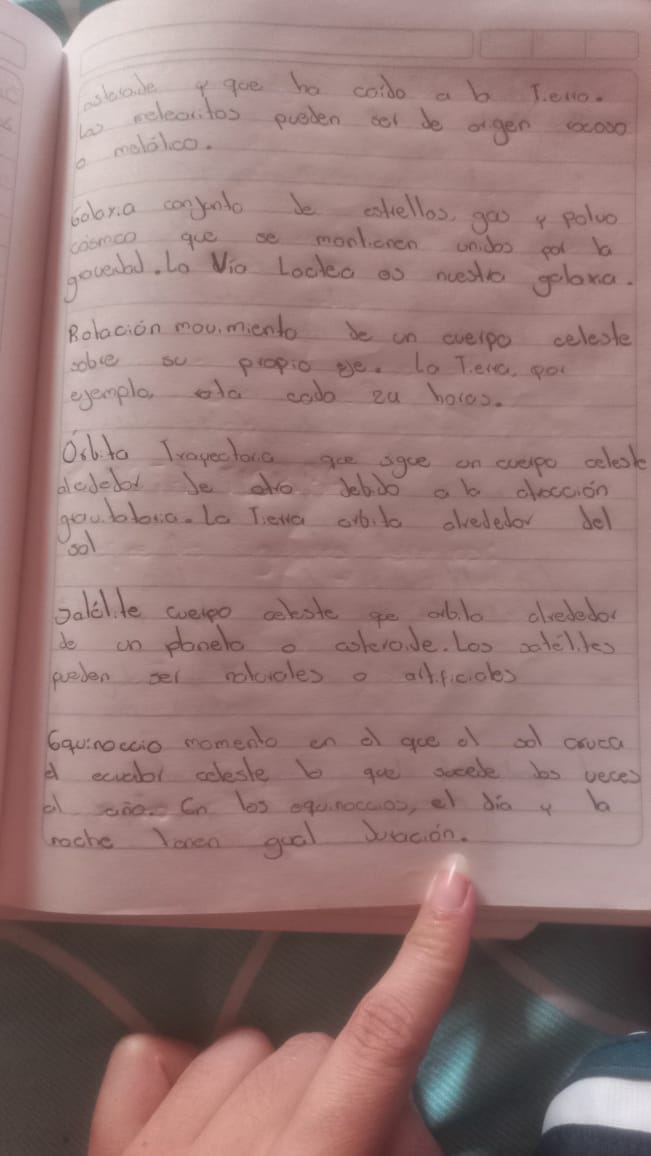 asteroide y que ha caído a la Tierra.
Los meteoritos pueden ser de origen rocoso
o metálico.
Galaxia conjunto de estrellas, gas y polvo
cósmico que se mantienen unidos por la
gravedad. La Vía Lactea es nuestra galaxia.
Rotación movimiento de un cuerpo celeste
sobre su propio eje. La Tierra, por
ejemplo, rota cada 24 horas.
Órbita Trayectoria que sigue un cuerpo celeste
alrededor de otro debido a la atracción
gravitatoria. La Tierra orbita alrededor del
sol
Satélite cuerpo celeste que orbita alrededor
de un planeta o asteroide. Los satélites
pueden ser naturales o artificiales
Equinoccio momento en el que el sol cruza
el ecuador celeste lo que sucede dos veces
al año. En los equinoccios, el día y la
noche tienen igual duración.